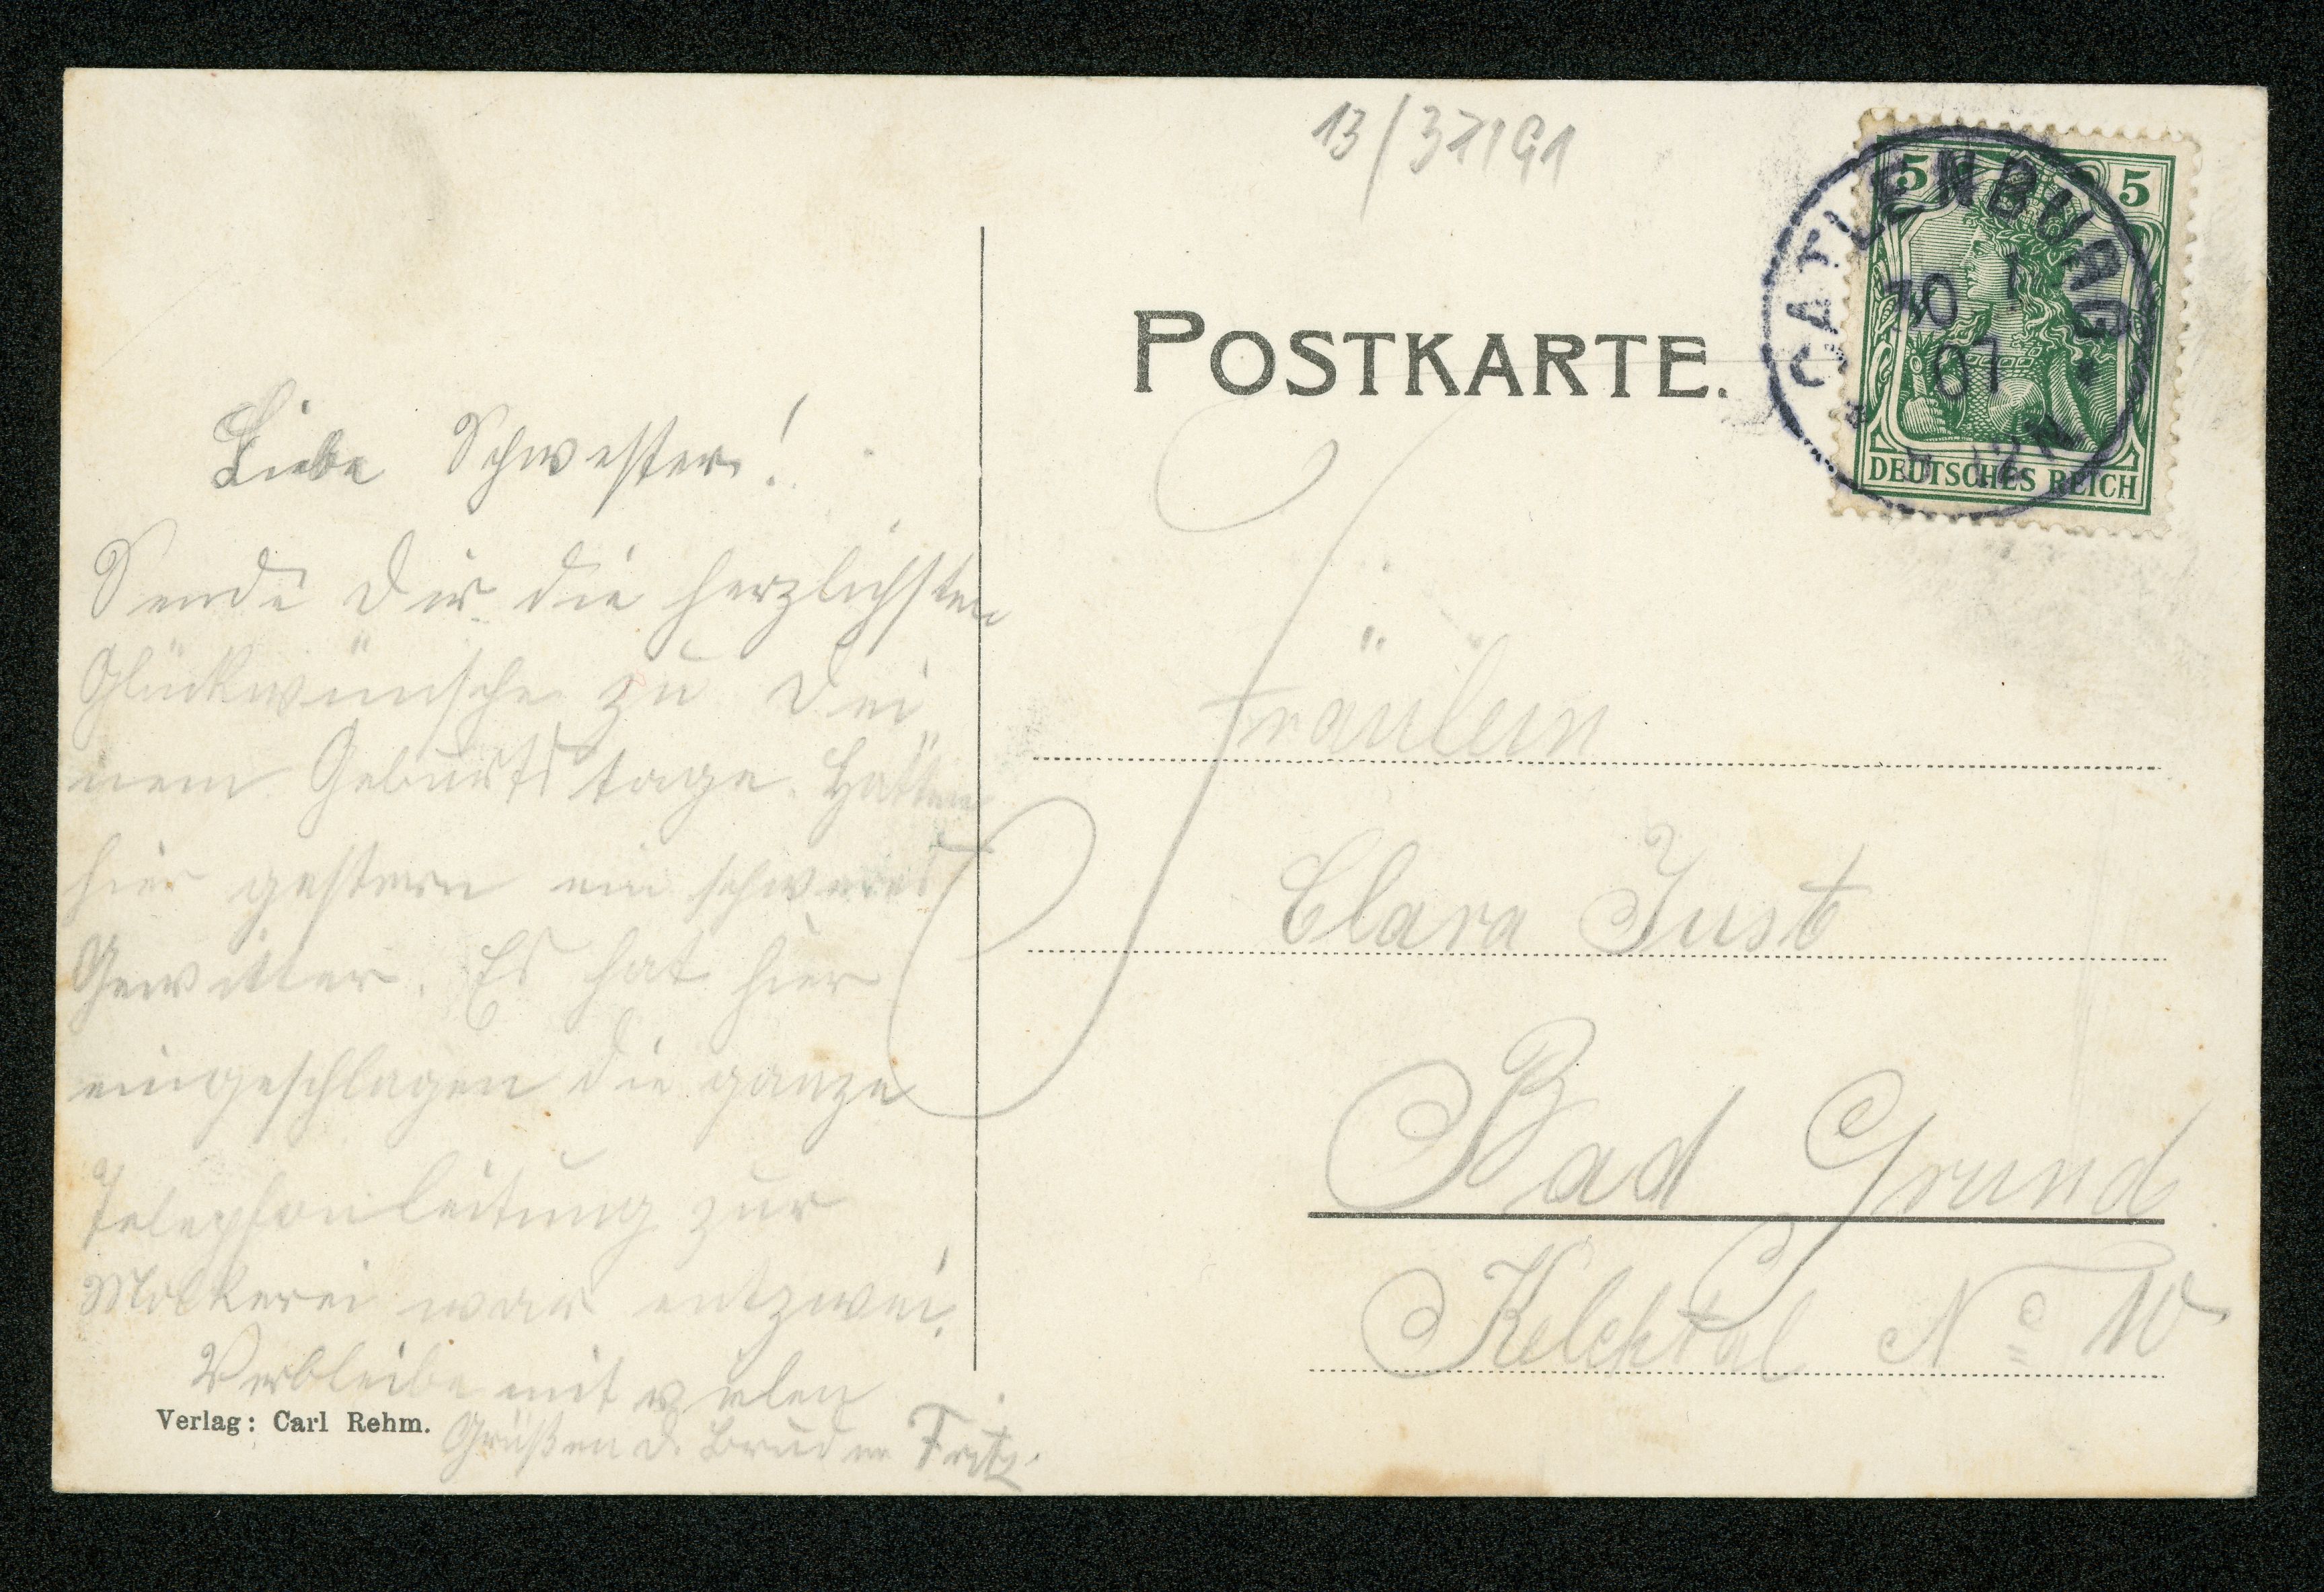 13/37191
5 5
CATLENBURG
10 1
07
DEUTSCHES REICH
POSTKARTE.
Liebe Schwester!
Sende Dir die herzlichsten
Glückwünsche zu Dei"
nem Geburtstage. Hatten
hier gestern ein schweres
Gewitter. Es hat hier
eingeschlagen die ganze
Telephonleitung zur
Molkerei war entzwei.
Verbleibe mit vielen
Grüßen d. Bruder Fritz.
Verlag: Carl Rehm.
Fräulein
Clara Just
Bad Grund
Kelchtal No 10